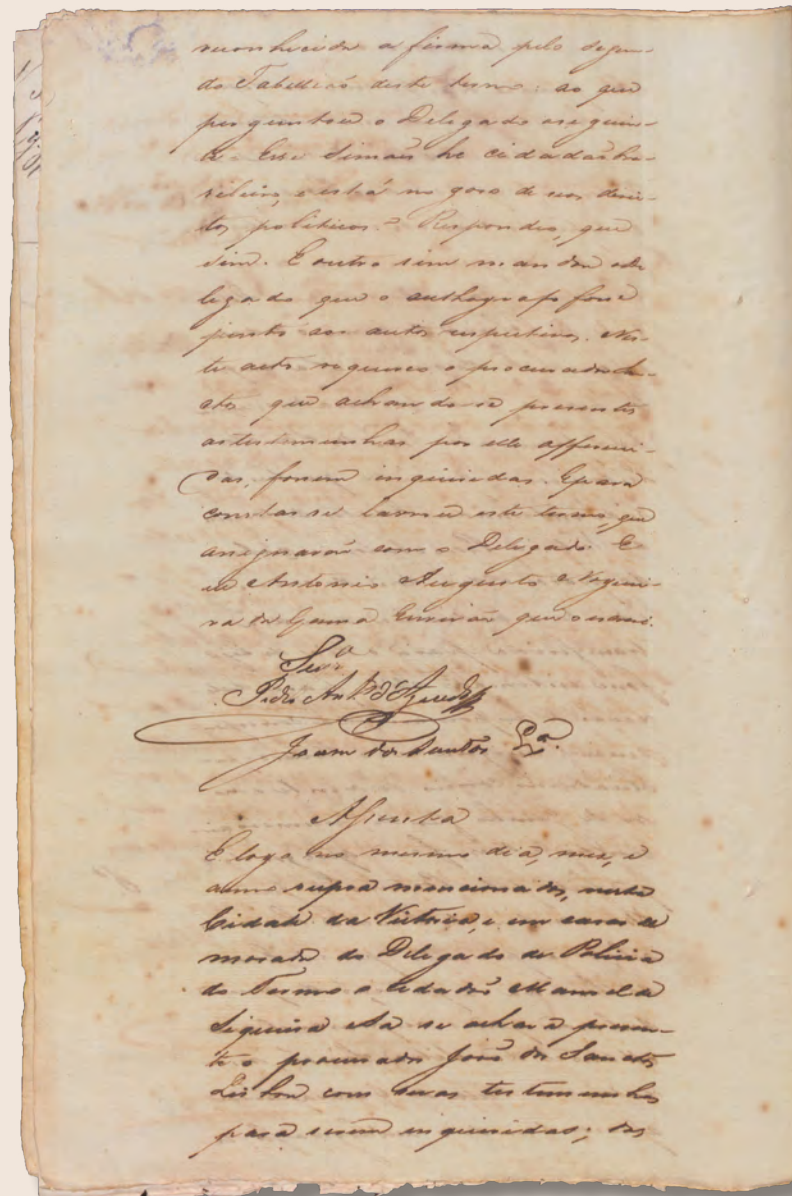 reconhecida a firma pelo segun-
do Tabelliaõ deste termo: ao que
perguntou o Delegado o seguin-
te. Esse Simaõ he cidadaõ bra-
sileiro, e está no goso de seos direi-
tos politicos? Respondeo, que
sim. E outro sim mandou o De-
legado que o authographo fosse
junto aos autos respectivos. Nes-
te acto requereo o procurador
que achando-se presentes
as testemunhas por elle offereci-
das, fossem inquiridas. E para
constar se lavrou este termo, que
assignaraõ com o Delegado. E
eu Antonio Augusto Noguei-
ra da Gama Escrivaõ que o escrevi.
Siqr.ª
Pedro Ant.º d'Azeredo
Joam dos Santos
Assentada
E logo no mesmo dia, mez, e
anno supra mencionados, nesta
Cidade da Victoria, e em casas de
morada do Delegado de Policia
do Termo o Cidadaõ Manoel de
Siqueira e Sá se achava presen-
te o procurador José dos Sanctos
Lisboa com suas testemunhas
para serem inqueridas; do